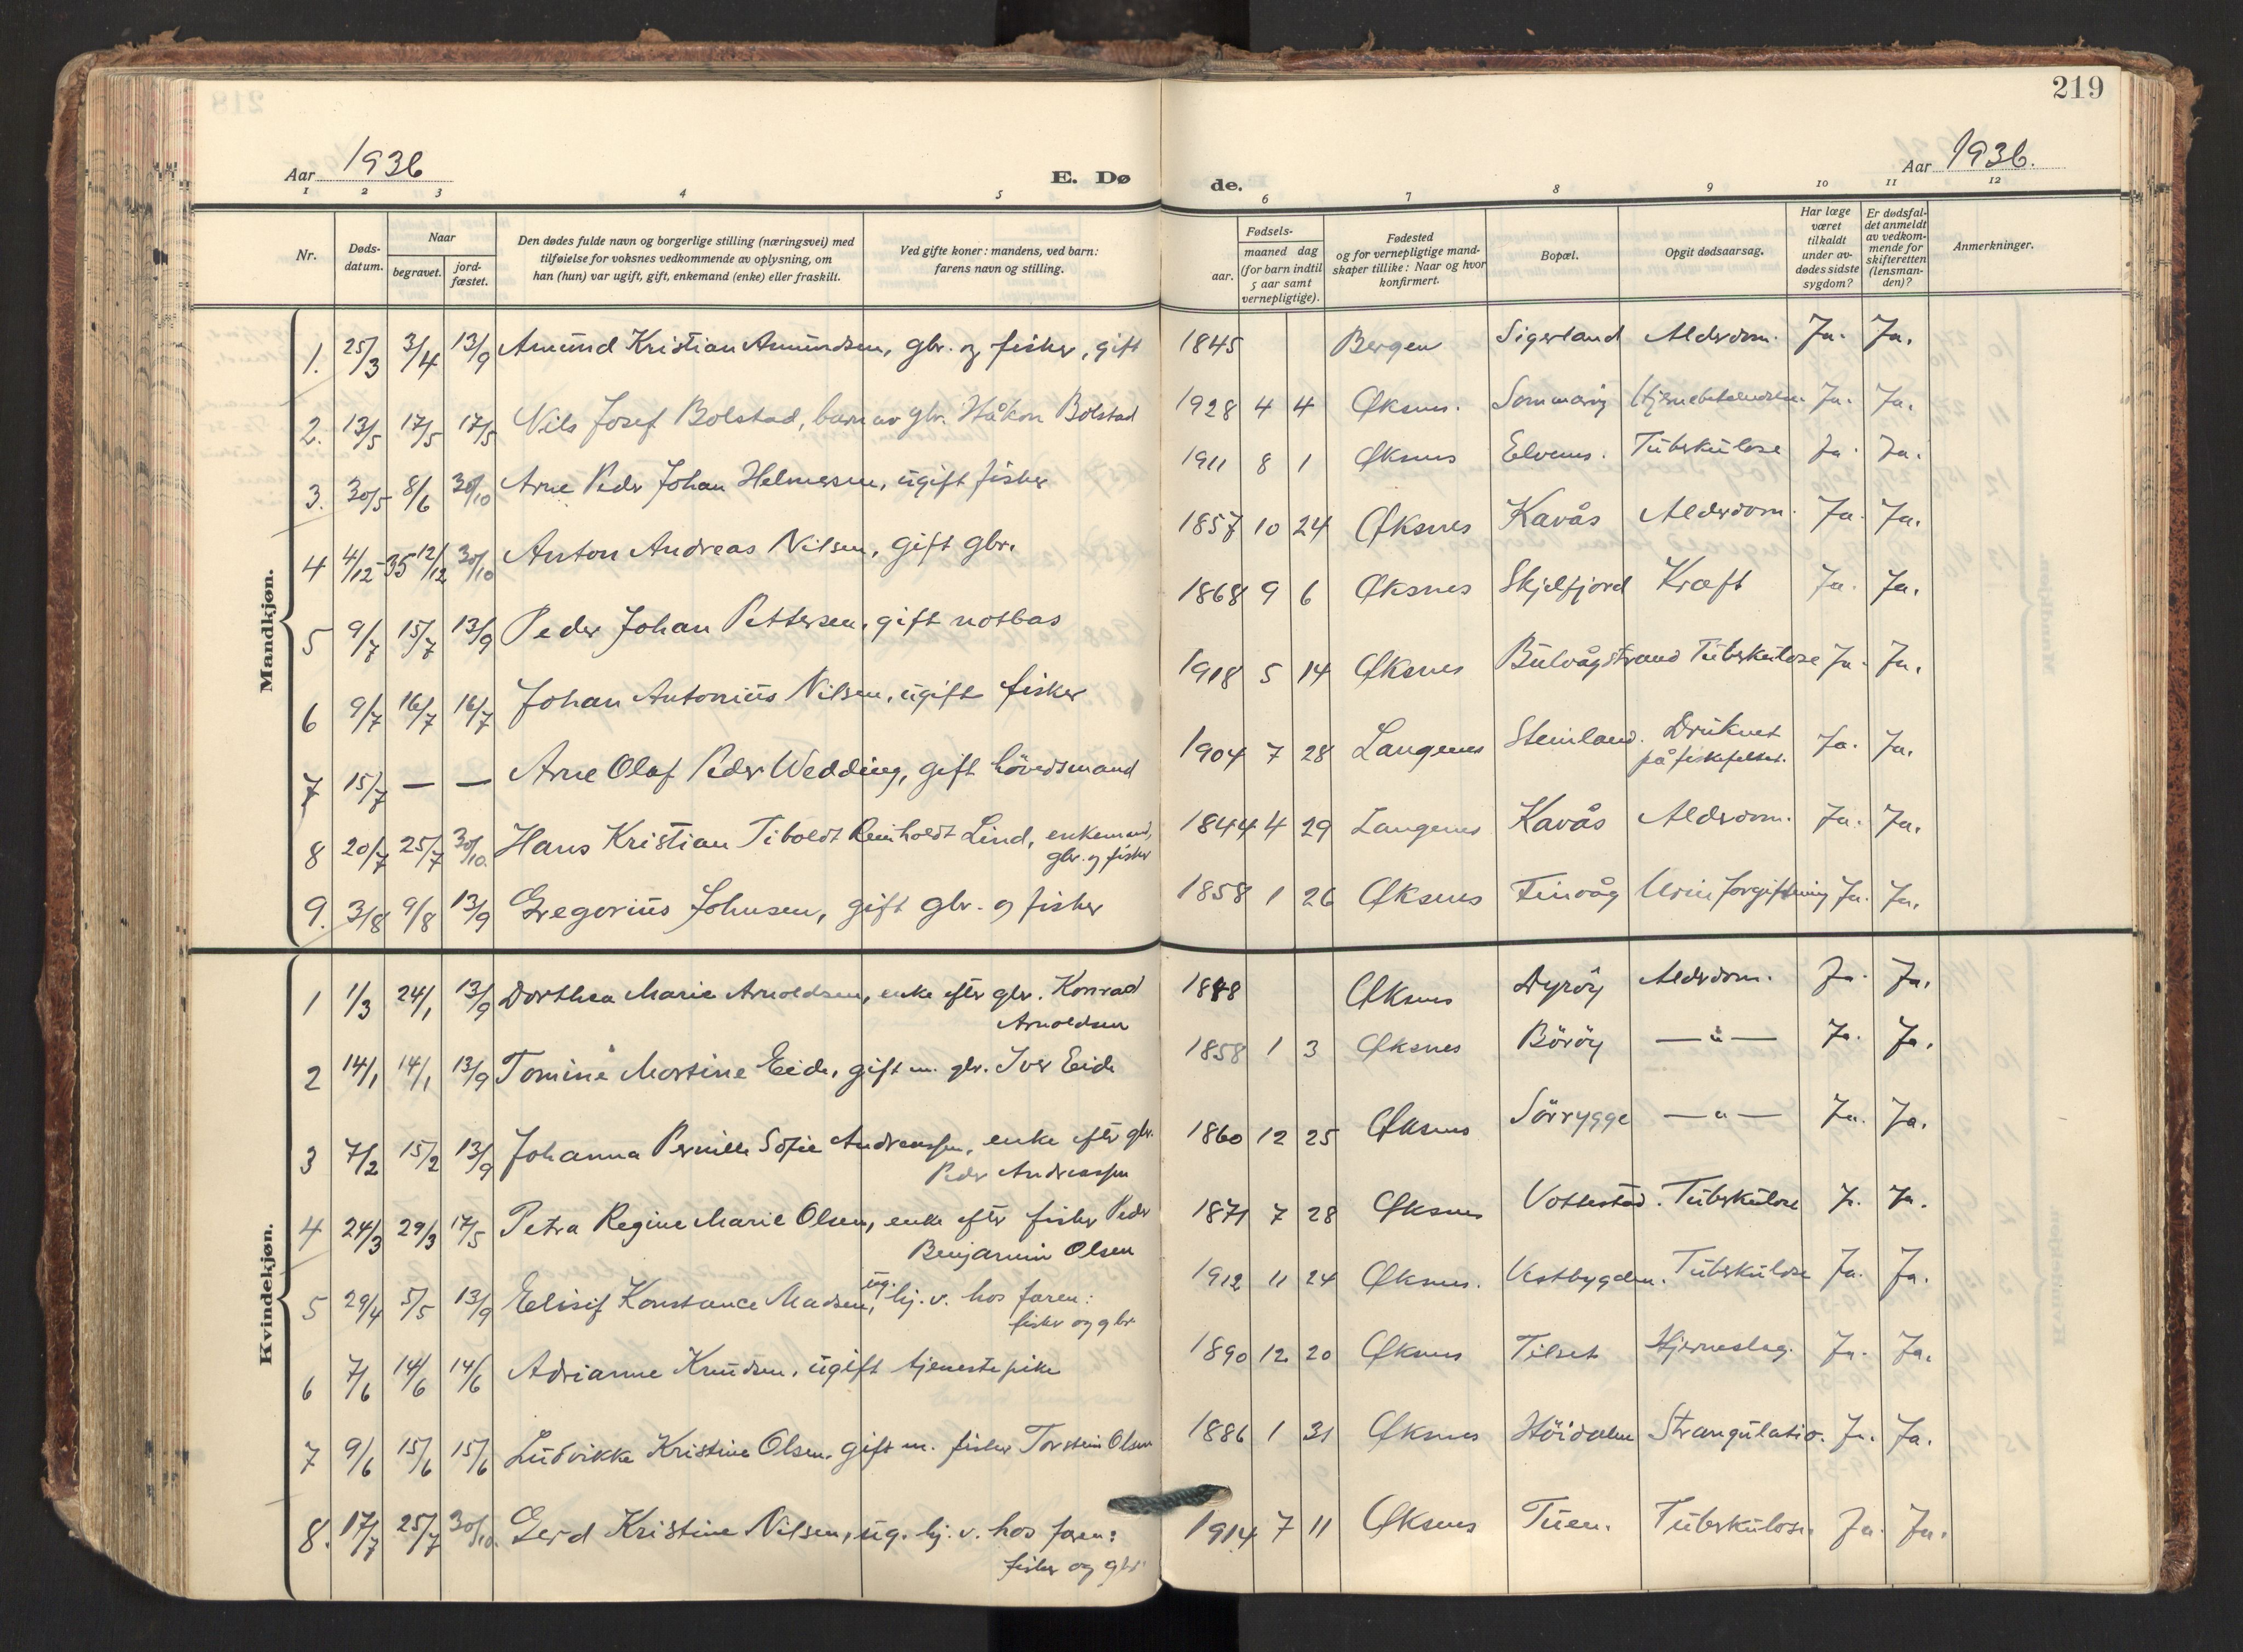 219
Aar 1936 E. Dø de. Aar 1936.
1 2 3 4 5 6 7 8 9 10 11 12
Nr.
Døds-
datum.
Naar
begravet.
jord-
fæstet.
Den dødes fulde navn og borgerlige stilling (næringsvei) med
tilføielse for voksnes vedkommende av oplysning, om
han (hun) var ugift, gift, enkemand (enke) eller fraskilt.
Ved gifte koner: mandens, ved barn:
farens navn og stilling.
Fødsels-
aar.
maaned dag
(for barn indtil
5 aar samt
vernepligtige).
Fødested
og for vernepligtige mand-
skaper tillike: Naar og hvor
konfirmert.
Bopæl.
Opgit dødsaarsag.
Har læge
været
tilkaldt
under av-
dødes sidste
sygdom?
Er dødsfal-
det anmeldt
av vedkom-
mende for
skifteretten
(lensman-
den)?
Anmerkninger.
Mandkjøn.
1. 25/3 3/4 13/9 Amund Kristian Amundsen, gbr. og fisker, gift 1845 Bergen Sigerland Alderdom. Ja. Ja.
2. 13/5 17/5 17/5 Nils Josef Bolstad, barn av gbr. Håkon Bolstad 1928 4 4 Øksnes. Sommarøy Hjernebetendelse Ja. Ja.
3. 30/5 8/6 30/10 Arne Peder Johan Helmersen, ugift fisker 1911 8 1 Øksnes Elvenes. Tuberkulose Ja. Ja.
4 4/12-35 12/12 30/10 Anton Andreas Nilsen, gift gbr. 1857 10 24 Øksnes Kavås Alderdom. Ja. Ja.
5 9/7 15/7 13/9 Peder Johan Pettersen, gift notbas 1868 9 6 Øksnes Skjelfjord Kræft Ja. Ja.
6 9/7 16/7 16/7 Johan Antonius Nilsen, ugift fisker 1918 5 14 Øksnes Bulvågstrand Tuberkulose Ja. Ja.
7 15/7 — — Arne Olaf Peder Wedding, gift hövedsmand 1904 7 28 Langenes Steinland. Druknet
på fiskefeltet. Ja. Ja.
8 20/7 25/7 30/10. Hans Kristian Tiboldt Reinholdt Lind, enkemand,
gbr. og fisker 1844 4 29 Langenes Kavås Alderdom. Ja. Ja.
9. 3/8 9/8 13/9 Gregorius Johnsen, gift gbr. og fisker 1858 1 26 Øksnes Finvåg Urinforgiftning Ja. Ja.
Kvindekjøn.
1 1/3 24/1 13/9 Dorthea Marie Arnoldsen, enke efter gbr. Konrad
Arnoldsen 1848 Øksnes Dyröy Alderdom. Ja. Ja.
2 14/1 14/1 13/9 Tomine Martine Eide, gift m. gbr. Iver Eide 1858 1 3 Øksnes Böröy — " — Ja. Ja.
3 7/2 15/2 13/9 Johanna Pernille Sofie Andreassen, enke efter gbr.
Peder Andreassen 1860 12 25 Øksnes Sörrygge — " — Ja. Ja.
4 24/3 29/3 17/5 Petra Regine Marie Olsen, enke efter fisker Peder
Benjamin Olsen 1871 7 28 Øksnes Vottestad. Tuberkulose Ja. Ja.
5 29/4 5/5 13/9 Elisif Konstance Madsen, ug. hj. v. hos faren:
fisker og gbr. 1912 11 24 Øksnes. Vestbygden. Tuberkulose Ja. Ja.
6 7/6 14/6 14/6 Adrianne Knudsen, ugift tjenestepike 1890 12 20 Øksnes Tilset Hjerneslag. Ja. Ja.
7 9/6 15/6 15/6 Ludvikke Kristine Olsen, gift m. fisker Torstein Olsen 1886 1 31 Øksnes Höidalen Strangulatio. Ja. Ja.
8. 17/7 25/7 30/10. Gerd Kristine Nilsen, ug. hj. v. hos faren:
fisker og gbr. 1914 7 11 Øksnes Tuen. Tuberkulose Ja. Ja.